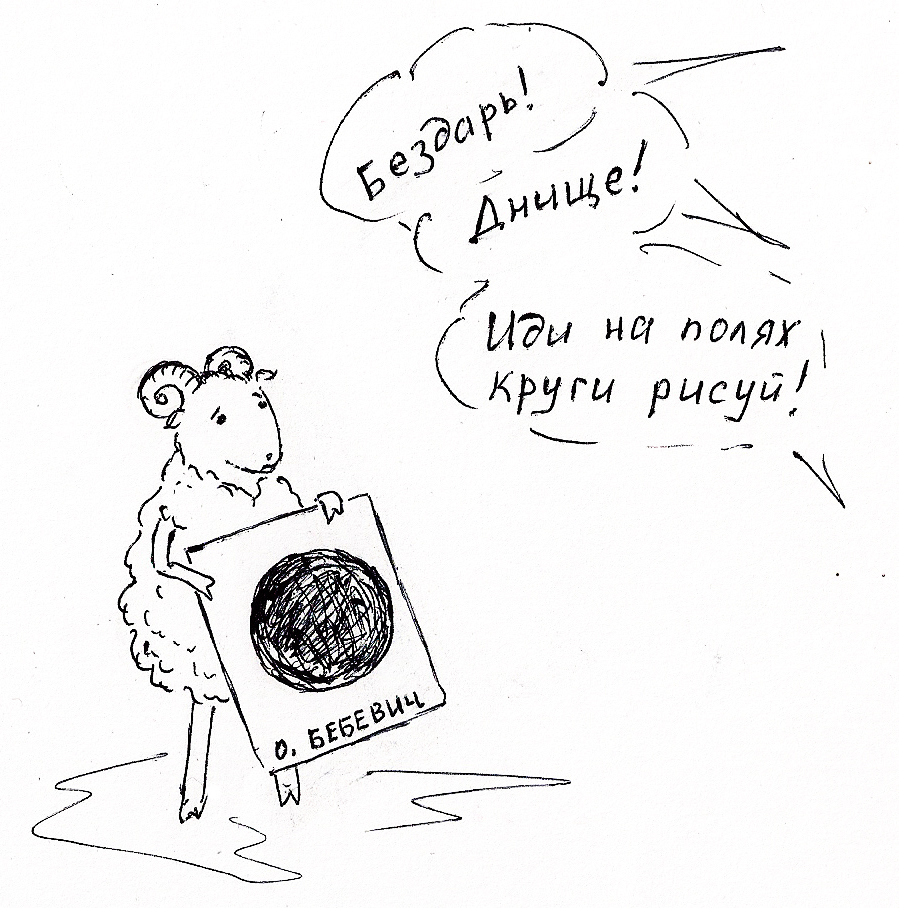 Бездарь!
Днище!
Иди на полях
круги рисуй!
О. БЕБЕВИЧ